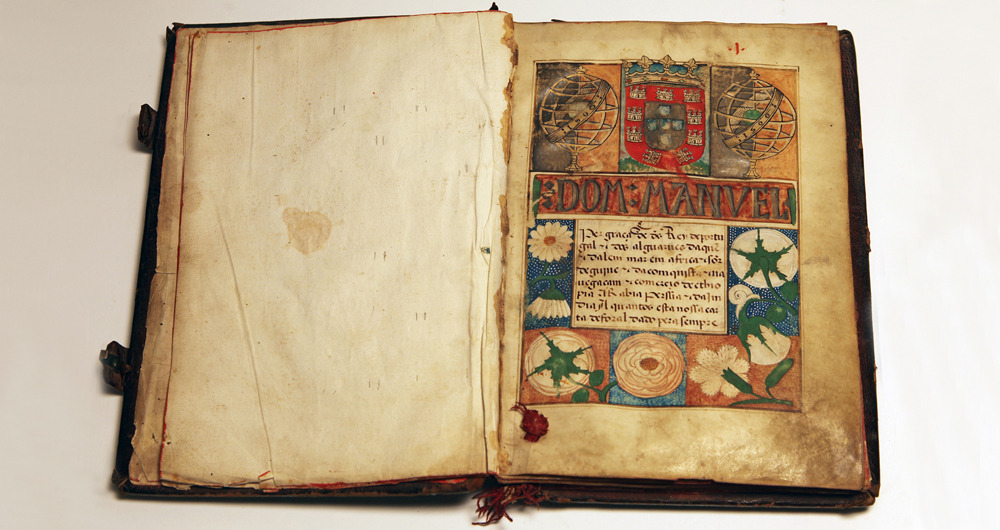 DOM: MANVEL
Per graça de ds Rey de portu
gal ⁊ dos alguarues daquẽ
⁊ dalem mar em africa sor
de guine ⁊ da comquista ⁊ na
uegacam ⁊ comercio de ethio
pia Arabia perssia ⁊ da Jm
dia A quantos esta nossa car
ta de foral dado pera sempre